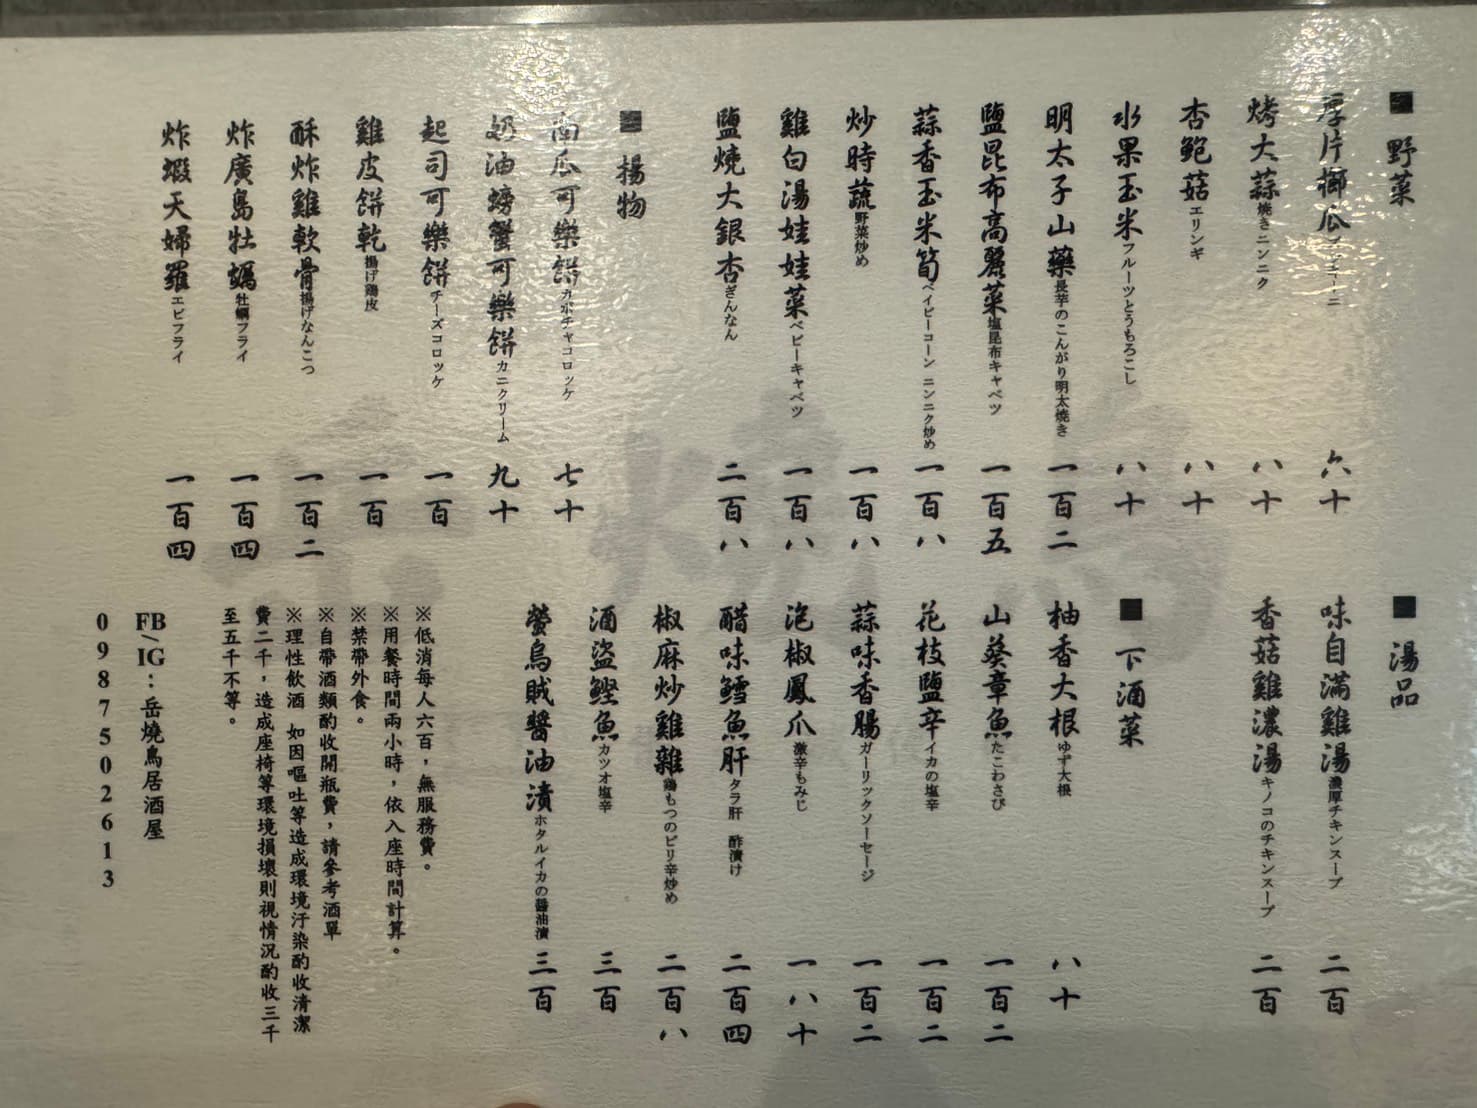 ■ 野菜
厚片櫛瓜
烤大蒜 焼きニンニク 八十
杏鮑菇 エリンギ 八十
水果玉米 フルーツとうもろこし 八十
明太子山藥 長芋のこんがり明太焼き 一百二
鹽昆布高麗菜 塩昆布キャベツ 一百五
蒜香玉米筍 ベイビーコーン ニンニク炒め 一百八
炒時蔬 野菜炒め 一百八
雞白湯娃娃菜 ベビーキャベツ 一百八
鹽燒大銀杏 ぎんなん 二百八
■ 揚物
南瓜可樂餅 カボチャコロッケ 七十
奶油螃蟹可樂餅 カニクリーム 九十
起司可樂餅 チーズコロッケ 一百
雞皮餅乾 揚げ鶏皮 一百
酥炸雞軟骨 揚げなんこつ 一百二
炸廣島牡蠣 牡蠣フライ 一百四
炸蝦天婦羅 エビフライ 一百四
■ 湯品
味自滿雞湯 濃厚チキンスープ 二百
香菇雞濃湯 キノコのチキンスープ 二百
■ 下酒菜
柚香大根 ゆず大根 八十
山葵章魚 たこわさび 一百二
花枝鹽辛 イカの塩辛 一百二
蒜味香腸 ガーリックソーセージ 一百二
泡椒鳳爪 激辛もみじ 一八十
醋味鱈魚肝 タラ肝 酢漬け 二百四
椒麻炒雞雜 鶏もつのピリ辛炒め 二百八
酒盜鰹魚 カツオ塩辛 三百
螢烏賊醬油漬 ホタルイカの醤油漬 三百
※低消每人六百，無服務費。
※用餐時間兩小時，依入座時間計算。
※禁帶外食。
※自帶酒類酌收開瓶費，請參考酒單
※理性飲酒 如因嘔吐等造成環境汙染酌收清潔
費二千，造成座椅等環境損壞則視情況酌收三千
至五千不等。
FB/IG：岳燒鳥居酒屋
0987502613